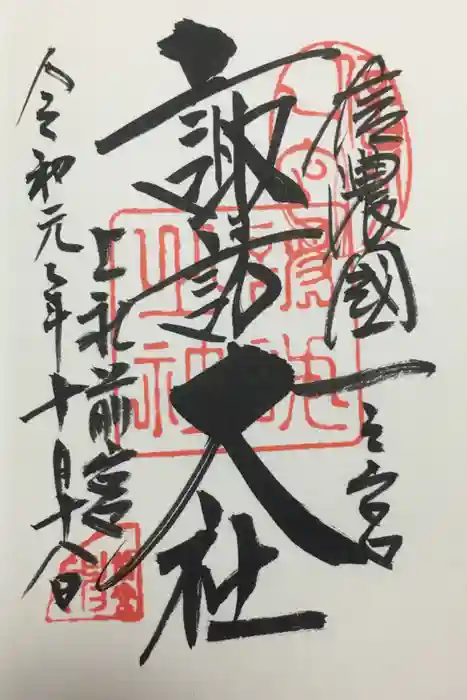 信濃國一之宮
諏訪大社
上社前宮
令和元年十月十八日